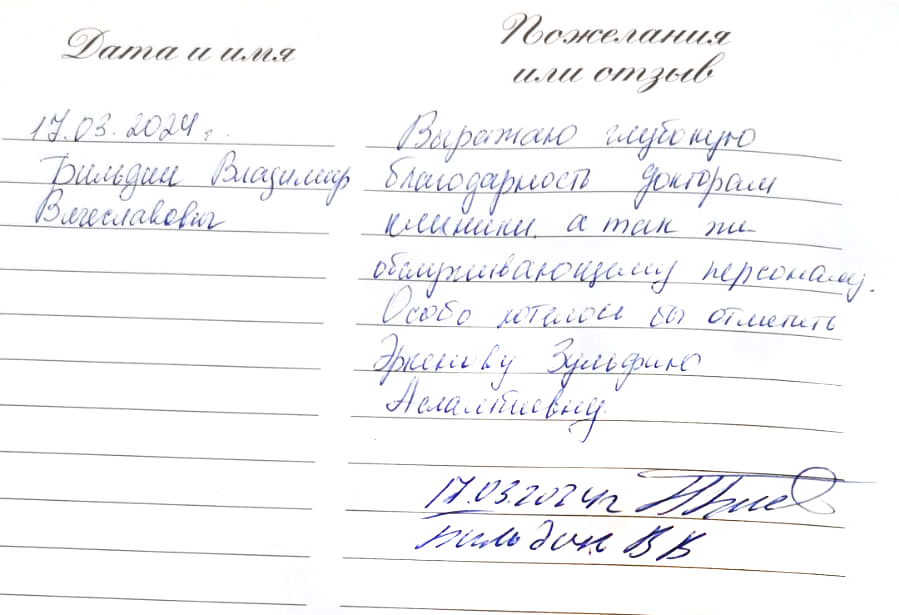 Дата и имя
Пожелания
или отзыв
17.03.2024г.
Бильдин Владимир
Вячеславович
Выражаю глубокую
благодарность докторам
клиники, а так же
обслуживающему персоналу.
Особо хотелось бы отметить
Эркенову Зульфию
17.03.2024г
Бильдин В В